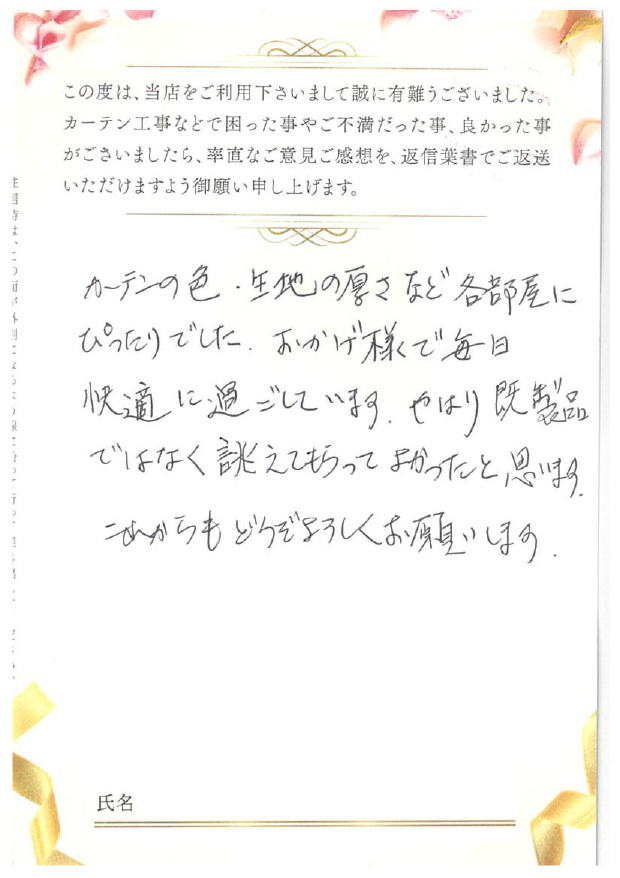 この度は、当店をご利用下さいまして誠に有難うございました。
カーテン工事などで困った事やご不満だった事、良かった事
がございましたら、率直なご意見ご感想を、返信葉書でご返送
いただけますよう御願い申し上げます。
カーテンの色・生地の厚さなど各部屋に
ぴったりでした。おかげ様で毎日
快適に過ごしています。やはり既製品
ではなく誂えてもらってよかったと思います。
これからもどうぞよろしくお願いします。
氏名